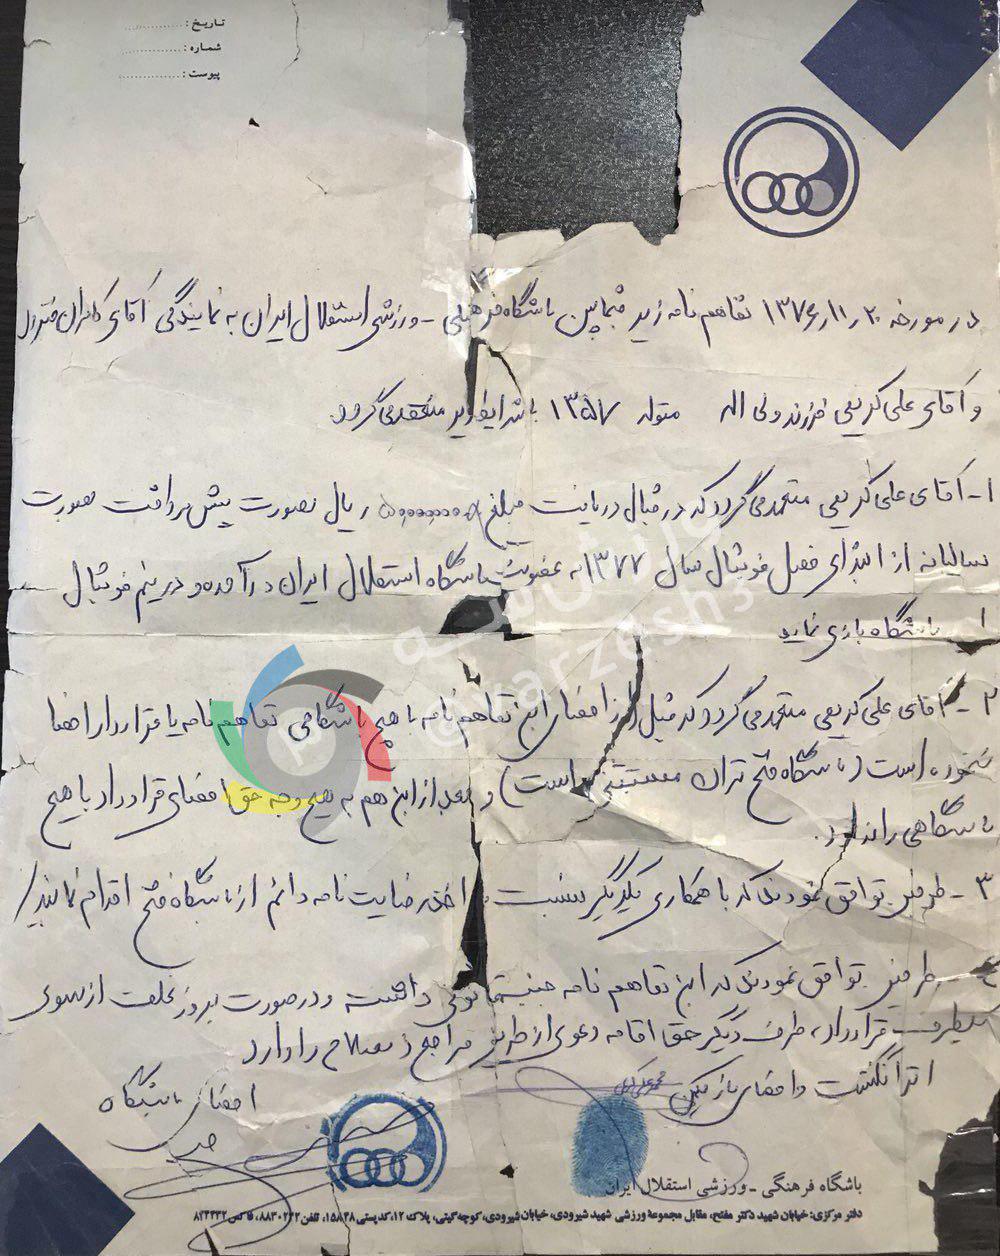 تاریخ : ..............
شماره : ..............
پیوست : ..............
در مورخه ۲۰ر۱۱ر۱۳۷۶ تفاهم نامه زیر فیمابین باشگاه فرهنگی - ورزشی استقلال ایران به نمایندگی آقای کامران
و آقای علی کریمی فرزند ولی اله متولد ۱۳۵۷ با شرایط زیر منعقد می گردد
۱- آقای علی کریمی متعهد می گردد که در قبال دریافت مبلغ ریال بصورت پیش پرداخت بصورت
سالیانه از ابتدای فصل فوتبال سال ۱۳۷۷ به عضویت باشگاه استقلال ایران درآمده و در تیم فوتبال
باشگاه بازی نماید
۲- آقای علی کریمی متعهد می گردد که قبل از امضای این تفاهم نامه با هیچ باشگاهی تفاهم نامه یا قرارداد امضا
نکرده است (باشگاه فتح تهران مستثنی است) و بعد از این هم به هیچ وجه حق امضای قرارداد با هیچ
باشگاهی را ندارد.
۳- طرفین توافق نمودند که با همکاری یکدیگر نسبت به اخذ رضایت نامه دائم از باشگاه فتح اقدام نمایند
۴- طرفین توافق نمودند که این تفاهم نامه داشته و در صورت بروز تخلف از سوی
یکطرف قرارداد، طرف دیگر حق اقامه دعوی از طریق مراجع ذیصلاح را دارد
اثر انگشت و امضای بازیکن
امضای باشگاه
ورزش سه
@varzesh3
باشگاه فرهنگی - ورزشی استقلال ایران
دفتر مرکزی: خیابان شهید دکتر مفتح، مقابل مجموعهٔ ورزشی شهید شیرودی، خیابان شیرودی، کوچه گیتی، پلاک ۱۲، کدپستی ۱۵۸۳۸، تلفن ۸۸۳۰۲۴۲، فاکس ۸۲۴۳۳۲